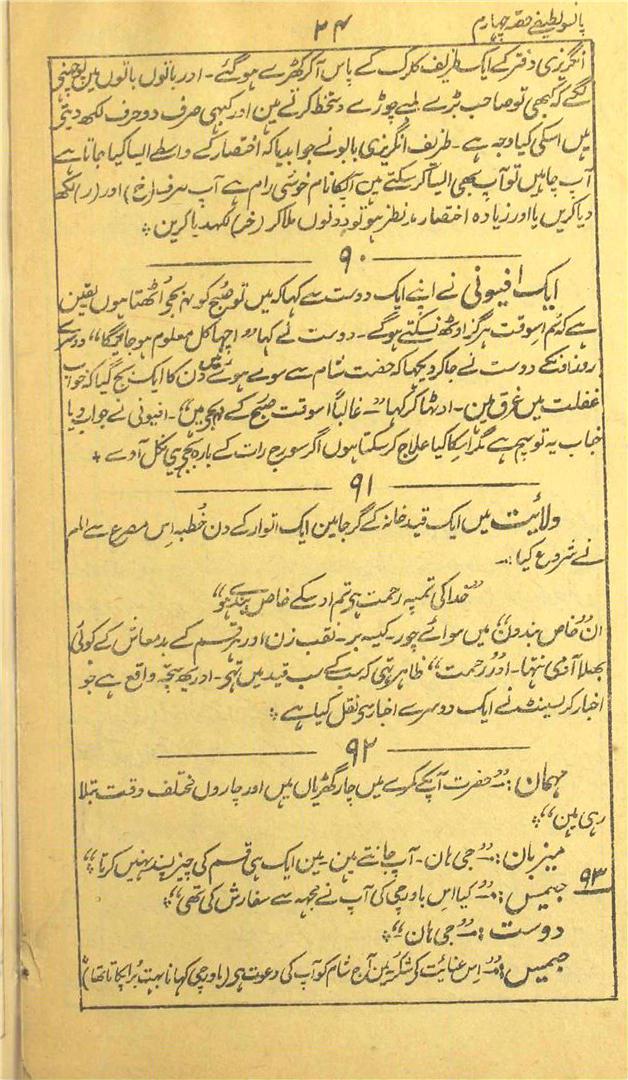 پانسو لطیفے حصہ چہارم
۲۴
انگریزی دفتر کے ایک ظریف کلرک کے پاس آکر کھڑے ہو گئے۔ اور باتوں باتوں مین پوچھنے
لگے کہ کبھی تو صاحب بڑے لمبے چوڑے دستخط کرتے مین اور کبھی صرف دو حرف لکھ دیتے
ہیں اسکی کیا وجہ ہے۔ ظریف انگریزی بابو نے جوابدیا کہ اختصار کے واسطے ایسا کیا جاتا ہے
آپ چاہیں تو آپ بھی ایسا کر سکتے ہیں آپکا نام خوشی رام ہے آپ صرف (خ) اور (ر) لکھ
دیا کریں یا اور زیادہ اختصار مدنظر ہو تو دونوں ملا کر (خر) لکھدیا کرین ٭
۹۰
ایک افیونی نے اپنے ایک دوست سے کہا کہ میں تو صبح کو نو بجے اُٹھتا ہوں یقین
ہے کہ تم اسوقت ہرگز اوٹھ نسکتے ہوگے۔ دوست نے کہا "اچھا کل معلوم ہو جائیگا" دوسرے
روز اونکے دوست نے جا کر دیکھا کہ حضت شام سے سوے ہوے ہیں دن کا ایک بج گیا کہ خواب
غفلت میں غرق ہین۔ اوٹھا کر کہا "غالباً اسوقت صبح کے نو بجے ہیں"۔ افیونی نے جواب دیا
جناب یہ تو سچ ہے مگر اسکا کیا علاج کر سکتا ہوں اگر سورج رات کے بارہ بجے ہی نکل آوے +
۹۱
ولائیت میں ایک قید خانہ کے گرجا مین ایک اتوار کے دن خُطبہ اِس مصرع سے امام
نے شروع کیا:۔
"خدا کی تمپہ رحمت ہو تم اوسکے خاص بندے ہو"
ان "خاص بندون" میں سوائے چور۔ کیسہ بر۔ نقب زن اور ہر قسم کے بدمعاش کے کوئی
بھلا آدمی نتھا۔ اور "رحمت" ظاہر تھی کہ سب کے سب قید میں تھے۔ اور یہ سچہ واقع ہے جو
اخبار کریسینٹ نے ایک دوسرے اخبار سے نقل کیا ہے ٭
۹۲
مہمان:۔ "حضرت آپکے کمرے میں چار گھڑیاں ہیں اور چاروں مختلف وقت بتلا
رہی ہین" ٭
میزبان:۔ "جی ہان۔ آپ جانتے ہین۔ مین ایک ہی قسم کی چیز پسند نہیں کرتا" ٭
۹۳ جیمس:۔ "کیا اس باورچی کی آپ نے مجھہ سے سفارش کی تھی" ٭
دوست:۔ "جی ہان" ٭
جیمس:۔ "اِس عنائیت کے شکریہ مین آج شام کو آپ کی دعوت ہے (باورچی کھانا بہت بُرا پکاتا تھا)"